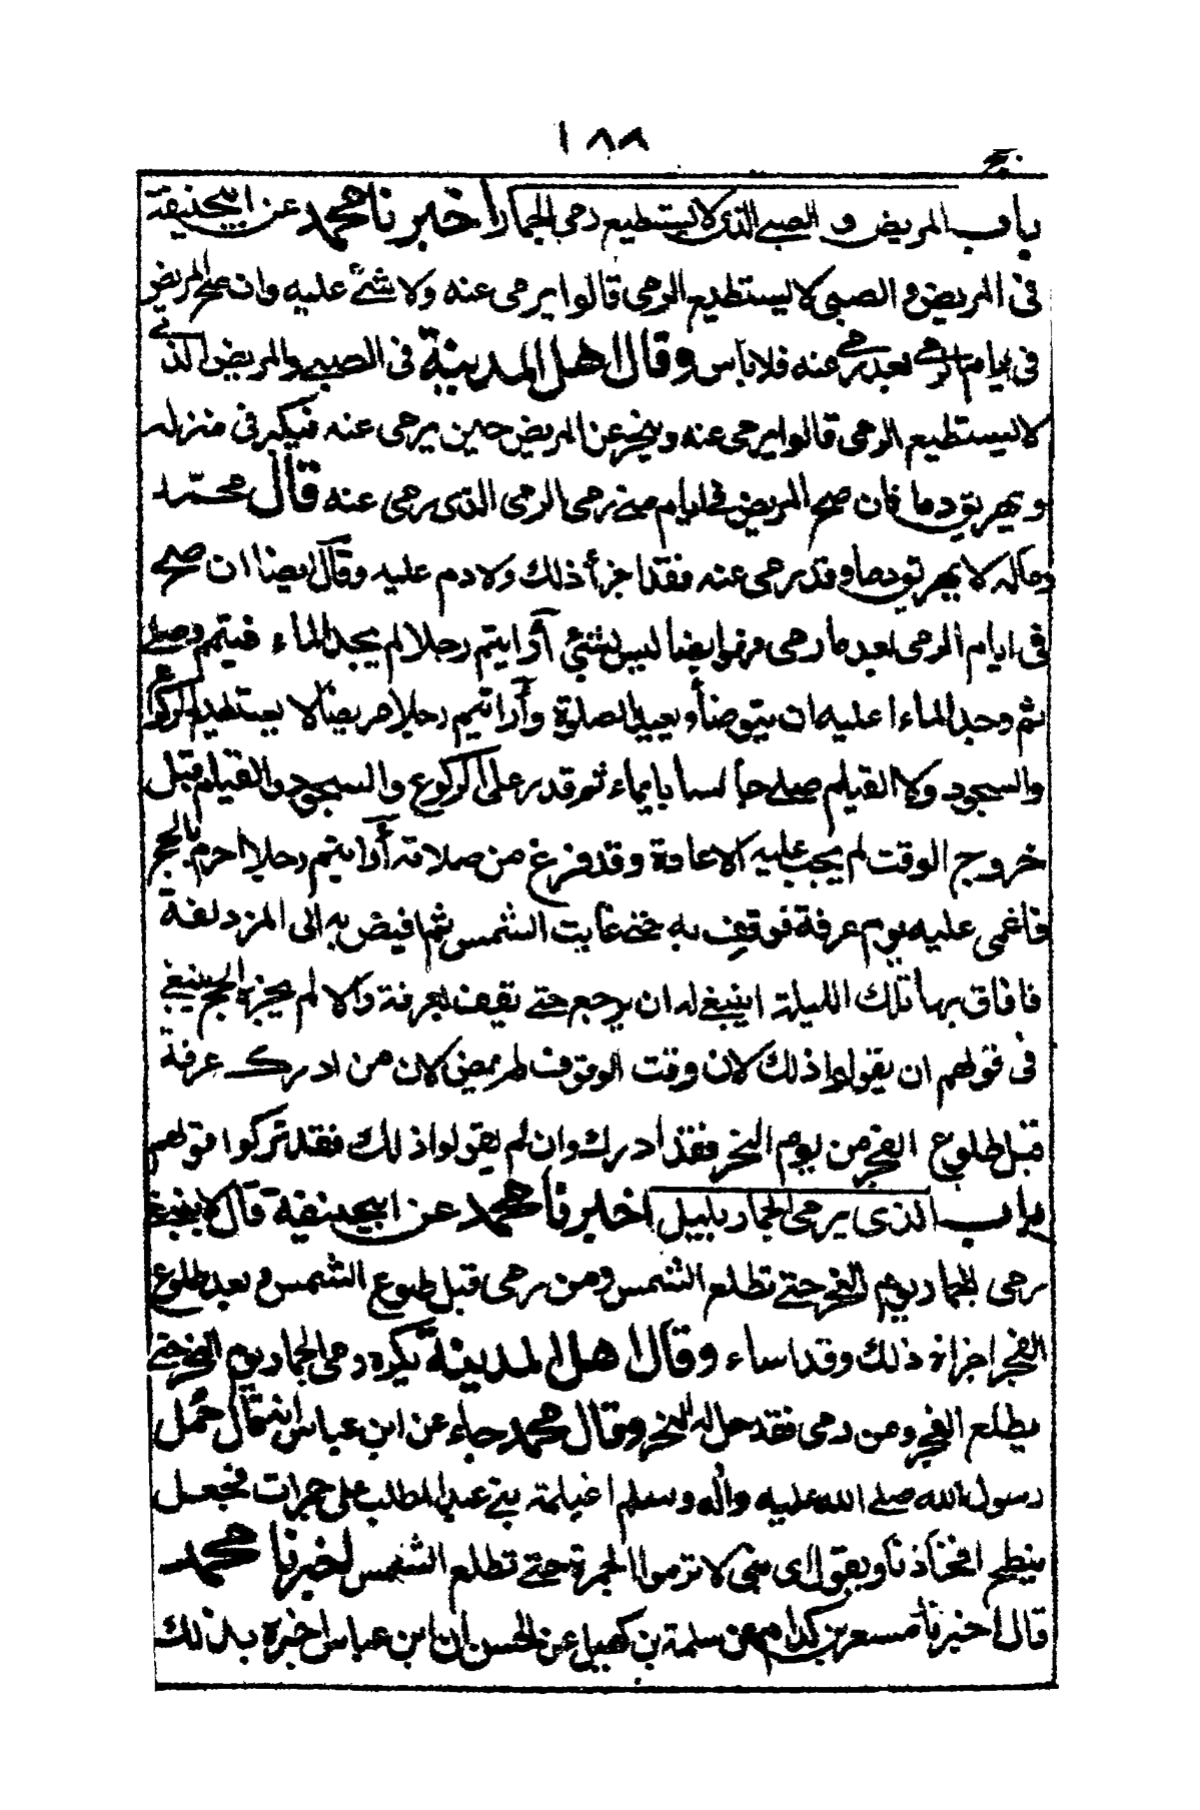 ١٨٨
حج
باب المريض والصبي الذي لا يستطيع رمي الجمار اخبرنا محمد عن ابيحنيفة
في المريض والصبي لا يستطيع الرمي قالوا يرمى عنه ولا شئ عليه وان صح المريض
في ايام الرمي بعد رمي عنه فلا باس وقال اهل المدينة في الصبي والمريض الذي
لا يستطيع الرمي قالوا يرمى عنه ويتحر عن المريض حين يرمى عنه فيكبر في منزله
ويهريق دما فان صح المريض في ايام منى رمى الرمي الذي رمى عنه قال محمد
وماله لا يهريق دما وقد رمى عنه فقد اجزأ ذلك ولا دم عليه وقال ايضا ان صح
في ايام الرمي بعد ما رمى فرموا ايضا ليس بشئي أرايتم رجلا لم يجد الماء فتيمم وصلى
ثم وجد الماء اعليه ان يتوضأ ويعيد الصلوة وأرايتم رجلا مريضا لا يستطيع الركوع
والسجود ولا القيام صلى جالسا بايماء ثم قدر على الركوع والسجود والقيام قبل
خروج الوقت لم يجب عليه الاعادة وقد فرغ من صلاته أرايتم رجلا احرم بالحج
فاغمى عليه يوم عرفة فوقف به حتى غابت الشمس ثم افيض به الى المزدلفة
فافاق بها تلك الليلة اينبغي له ان يرجع حتى يقف بعرفة والا لم يجزه الحج ينبغي
في قولهم ان يقولوا ذلك لان وقت الوقوف لم يمض لان من ادرك عرفة
قبل طلوع الفجر من يوم النحر فقد ادرك وان لم يقولوا ذلك فقد تركوا قولهم
باب الذي يرمي الجمار بليل اخبرنا محمد عن ابيحنيفة قال لا ينبغي
رمي الجمار يوم النحر حتى تطلع الشمس ومن رمى قبل طلوع الشمس وبعد طلوع
الفجر اجزاه ذلك وقد اساء وقال اهل المدينة يكره رمي الجمار يوم النحر حتى
يطلع الفجر ومن رمى فقد حل له النحر وقال محمد جاء عن ابن عباس انه قال حمل
رسول الله صلى الله عليه واله وسلم اغيلمة بني عبد المطلب على جمرات فجعل
ينطح افخاذنا ويقول اي بني لا ترموا الجمرة حتى تطلع الشمس اخبرنا محمد
قال اخبرنا مسعر بن كدام عن سلمة بن كهيل عن الحسن ان ابن عباس اخبره بذلك